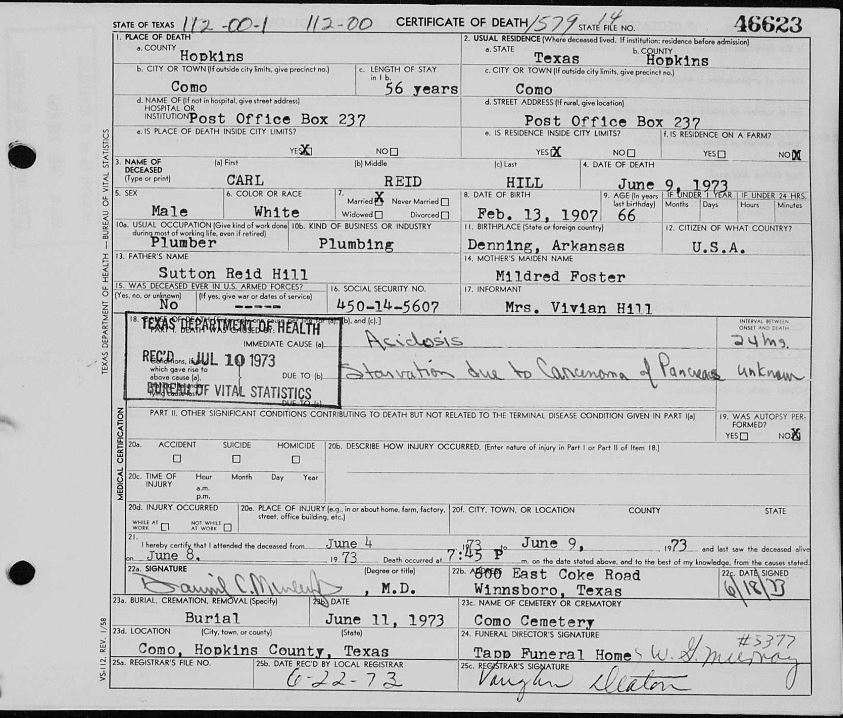 STATE OF TEXAS 112-00-1 112-00 CERTIFICATE OF DEATH 1579 14 STATE FILE NO. 46623
1. PLACE OF DEATH
a. COUNTY
Hopkins
2. USUAL RESIDENCE (Where deceased lived. If institution: residence before admission)
a. STATE b. COUNTY
Texas Hopkins
b. CITY OR TOWN (If outside city limits, give precinct no.)
Como
c. LENGTH OF STAY
in 1 b.
56 years
c. CITY OR TOWN (If outside city limits, give precinct no.)
Como
d. NAME OF (If not in hospital, give street address)
HOSPITAL OR
INSTITUTION Post Office Box 237
d. STREET ADDRESS (If rural, give location)
Post Office Box 237
e. IS PLACE OF DEATH INSIDE CITY LIMITS?
YES X NO
e. IS RESIDENCE INSIDE CITY LIMITS?
YES X NO
f. IS RESIDENCE ON A FARM?
YES NO X
3. NAME OF
DECEASED
(Type or print)
(a) First (b) Middle (c) Last
CARL REID HILL
4. DATE OF DEATH
June 9, 1973
5. SEX
Male
6. COLOR OR RACE
White
7.
Married X Never Married
Widowed Divorced
8. DATE OF BIRTH
Feb. 13, 1907
9. AGE (In years
last birthday)
66
IF UNDER 1 YEAR
Months Days
IF UNDER 24 HRS.
Hours Minutes
10a. USUAL OCCUPATION (Give kind of work done
during most of working life, even if retired)
Plumber
10b. KIND OF BUSINESS OR INDUSTRY
Plumbing
11. BIRTHPLACE (State or foreign country)
Denning, Arkansas
12. CITIZEN OF WHAT COUNTRY?
U.S.A.
13. FATHER'S NAME
Sutton Reid Hill
14. MOTHER'S MAIDEN NAME
Mildred Foster
15. WAS DECEASED EVER IN U.S. ARMED FORCES?
(Yes, no, or unknown) (If yes, give war or dates of service)
No -----
16. SOCIAL SECURITY NO.
450-14-5607
17. INFORMANT
Mrs. Vivian Hill
18.
TEXAS DEPARTMENT OF HEALTH
REC'D JUL 10 1973
BUREAU OF VITAL STATISTICS
IMMEDIATE CAUSE (a) Acidosis
which gave rise to
above cause (a),
DUE TO (b) Starvation due to Carcenoma of Pancreas
DUE TO (c)
INTERVAL BETWEEN
ONSET AND DEATH
24 hrs.
unknown
PART II. OTHER SIGNIFICANT CONDITIONS CONTRIBUTING TO DEATH BUT NOT RELATED TO THE TERMINAL DISEASE CONDITION GIVEN IN PART I(a)
19. WAS AUTOPSY PER-
FORMED?
YES NO X
MEDICAL CERTIFICATION
20a. ACCIDENT SUICIDE HOMICIDE
20b. DESCRIBE HOW INJURY OCCURRED. (Enter nature of injury in Part I or Part II of Item 18.)
20c. TIME OF
INJURY
Hour Month Day Year
a.m.
p.m.
20d. INJURY OCCURRED
WHILE AT
WORK
NOT WHILE
AT WORK
20e. PLACE OF INJURY (e.g., in or about home, farm, factory,
street, office building, etc.)
20f. CITY, TOWN, OR LOCATION COUNTY STATE
21.
I hereby certify that I attended the deceased from June 4 1973 to June 9, 1973 and last saw the deceased alive
on June 8. 1973 Death occurred at 7:45 P m. on the date stated above, and to the best of my knowledge, from the causes stated.
22a. SIGNATURE (Degree or title)
, M.D.
22b. ADDRESS
East Coke Road
Winnsboro, Texas
22c. DATE SIGNED
6/18/73
23a. BURIAL, CREMATION, REMOVAL (Specify)
Burial
23b. DATE
June 11, 1973
23c. NAME OF CEMETERY OR CREMATORY
Como Cemetery
23d. LOCATION (City, town, or county) (State)
Como, Hopkins County, Texas
24. FUNERAL DIRECTOR'S SIGNATURE
#5377
Tapp Funeral Home W. G. Murray
25a. REGISTRAR'S FILE NO.
25b. DATE REC'D BY LOCAL REGISTRAR
6-22-73
25c. REGISTRAR'S SIGNATURE
Vaughn Deaton
TEXAS DEPARTMENT OF HEALTH — BUREAU OF VITAL STATISTICS
VS-112, REV. 1/58